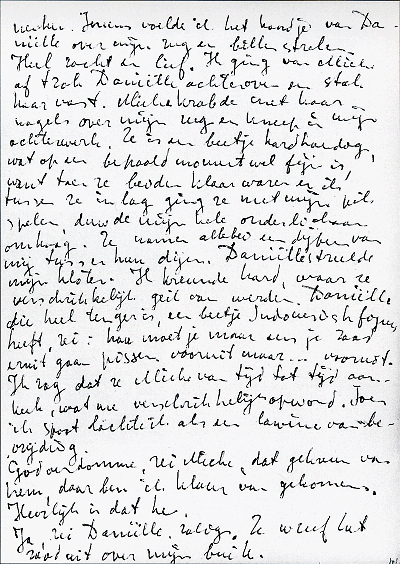 merken. Ineens voelde ik het handje van Da-
niëlle over mijn rug en billen strelen.
Heel zacht en lief. Ik ging van Mieke
af trok Daniëlle achterover en stak
haar vast. Mieke krabde met haar
nagels over mijn rug en kneep in mijn
achterwerk. Ze is een beetje hardhandig,
wat op een bepaald moment wel fijn is,
want toen ze beiden klaar waren en ik
tussen ze in lag ging ze met mijn pik
spelen, duwde mijn hele onderlichaam
omhoog. Ze namen allebei een dijbeen van
mij tussen hun dijen. Daniëlle streelde
mijn kloten. Ik kreunde hard, waar ze
verschrikkelijk geil van werden. Daniëlle
die heel tenger is, een beetje Indonesisch figuur
heeft, zei: hou moet je maar eens je zaad
eruit gaan pissen vooruit maar... vooruit.
Ik zag dat ze Mieke van tijd tot tijd aan-
keek, wat me verschrikkelijk opwond. Toen
ik spoot als een lawine van be-
vrijding.
Godverdomme, zei Mieke, dat gekreun van
hem, daar ben ik klaar van gekomen.
Heerlijk is dat he.
Ja, zei Daniëlle. Ze wreef het
zaad uit over mijn buik.